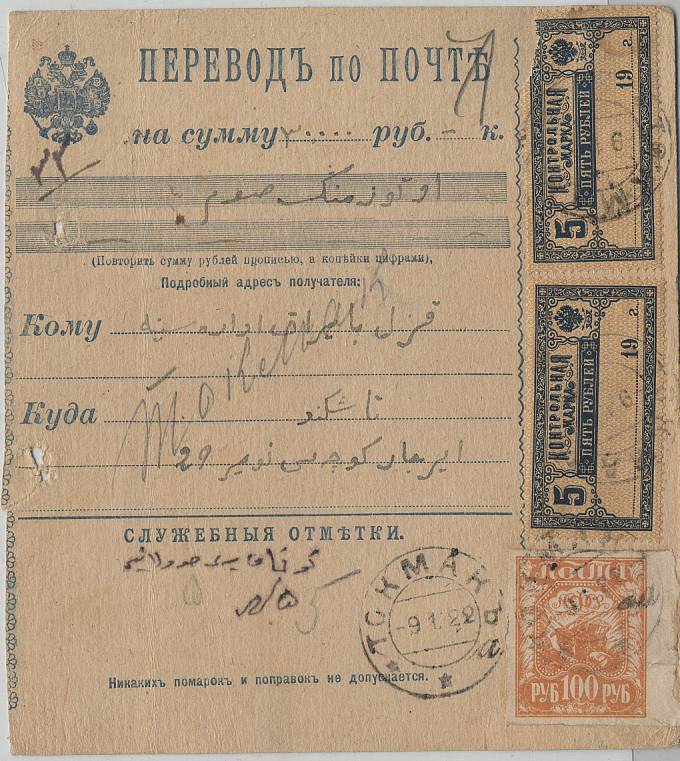 ПЕРЕВОДЪ по ПОЧТѢ
на сумму ۳۰۰۰۰ руб. - к.
۳۳
اوتوز منک صوم
(Повторить сумму рублей прописью, а копѣйки цифрами),
Подробный адресъ получателя:
Кому قزل بایراق اداره سینه
Куда تاشکند
نومیر 29
СЛУЖЕБНЫЯ ОТМѢТКИ.
Никакихъ помарокъ и поправокъ не допускается.
ТОКМАКЪ
-9.1.22
а
КОНТРОЛЬНАЯ МАРКА
ПЯТЬ РУБЛЕЙ
5
19 г.
КОНТРОЛЬНАЯ МАРКА
ПЯТЬ РУБЛЕЙ
5
19 г.
ПОЧТА
РУБ 100 РУБ